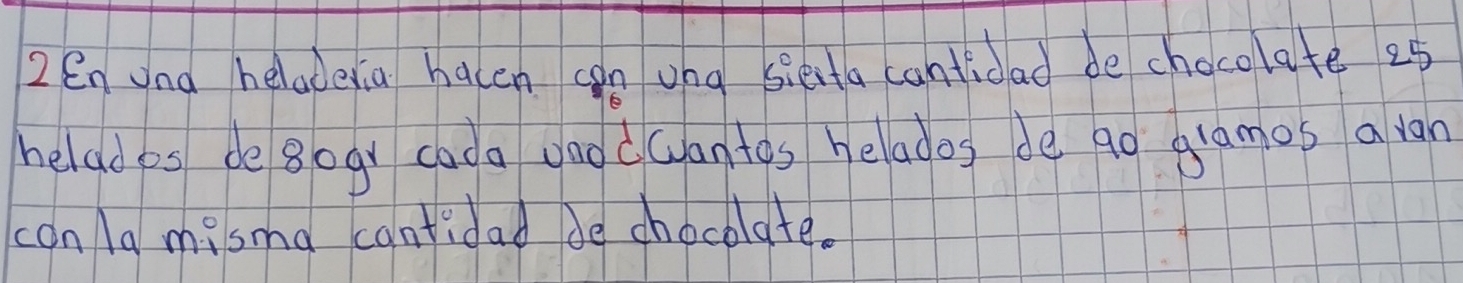 2 En una heladeria hacen con una sierta cantidad de chocolate 25
helados de 80gr cada uno ¿Cuantos helados de 90 gramos aran
con la misma cantidad de chocolate.